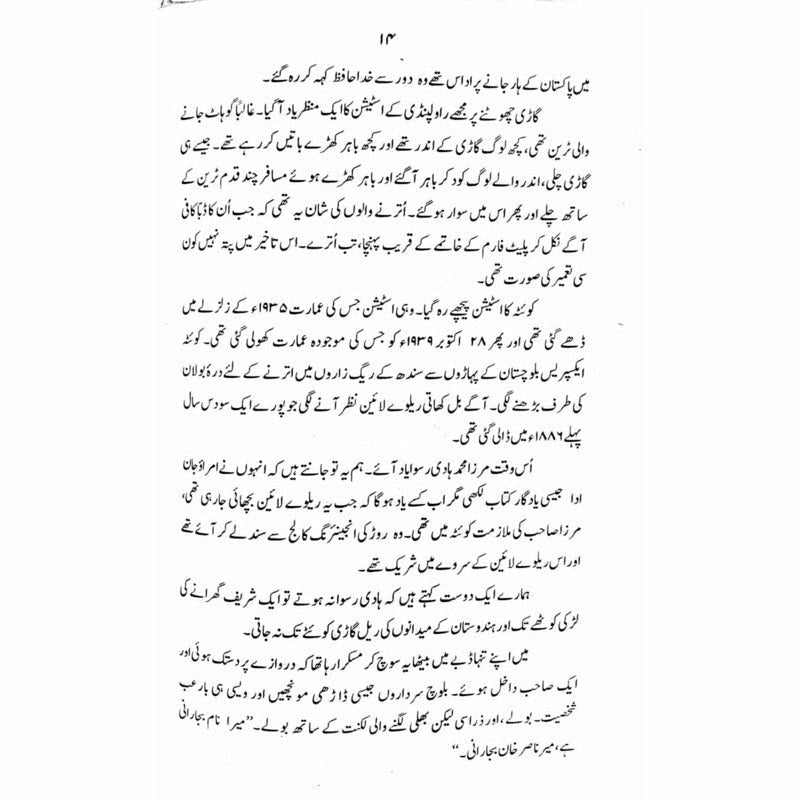 ۱۴
میں پاکستان کے ہار جانے پر اداس تھے وہ دور سے خدا حافظ کہہ کر رہ گئے۔
گاڑی چھوٹنے پر مجھے راولپنڈی کے اسٹیشن کا ایک منظر یاد آ گیا۔ غالباً کوہاٹ جانے
والی ٹرین تھی، کچھ لوگ گاڑی کے اندر تھے اور کچھ باہر کھڑے باتیں کر رہے تھے۔ جیسے ہی
گاڑی چلی، اندر والے لوگ کود کر باہر آ گئے اور باہر کھڑے ہوئے مسافر چند قدم ٹرین کے
ساتھ چلے اور پھر اس میں سوار ہو گئے۔ اُترنے والوں کی شان یہ تھی کہ جب اُن کا ڈبّا کافی
آگے نکل کر پلیٹ فارم کے خاتمے کے قریب پہنچا، تب اُترے۔ اس تاخیر میں پتہ نہیں کون
سی تعمیر کی صورت تھی۔
کوئٹہ کا اسٹیشن پیچھے رہ گیا۔ وہی اسٹیشن جس کی عمارت ۱۹۳۵ء کے زلزلے میں
ڈھے گئی تھی اور پھر ۲۸ اکتوبر ۱۹۳۹ء کو جس کی موجودہ عمارت کھولی گئی تھی۔ کوئٹہ
ایکسپریس بلوچستان کے پہاڑوں سے سندھ کے ریگ زاروں میں اترنے کے لئے درۂ بولان
کی طرف بڑھنے لگی۔ آگے بل کھاتی ریلوے لائین نظر آنے لگی جو پورے ایک سو دس سال
پہلے ۱۸۸۶ء میں ڈالی گئی تھی۔
اُس وقت مرزا محمد ہادی رسوا یاد آئے۔ ہم یہ تو جانتے ہیں کہ انہوں نے امراؤ جان
ادا جیسی یادگار کتاب لکھی مگر اب کسے یاد ہو گا کہ جب یہ ریلوے لائین بچھائی جا رہی تھی،
مرزا صاحب کی ملازمت کوئٹہ میں تھی۔ وہ روڑکی انجینئرنگ کالج سے سند لے کر آئے تھے
اور اس ریلوے لائین کے سروے میں شریک تھے۔
ہمارے ایک دوست کہتے ہیں کہ ہادی رسوا نہ ہوتے تو ایک شریف گھرانے کی
لڑکی کوٹھے تک اور ہندوستان کے میدانوں کی ریل گاڑی کوئٹے تک نہ جاتی۔
میں اپنے تنہا ڈبے میں بیٹھا یہ سوچ کر مسکرا رہا تھا کہ دروازے پر دستک ہوئی اور
ایک صاحب داخل ہوئے۔ بلوچ سرداروں جیسی ڈاڑھی مونچھیں اور ویسی ہی بارعب
شخصیت۔ بولے، اور ذرا سی لیکن بھلی لگنے والی لکنت کے ساتھ بولے۔ “میرا نام بجارانی
ہے، میر ناصر خان بجارانی۔”